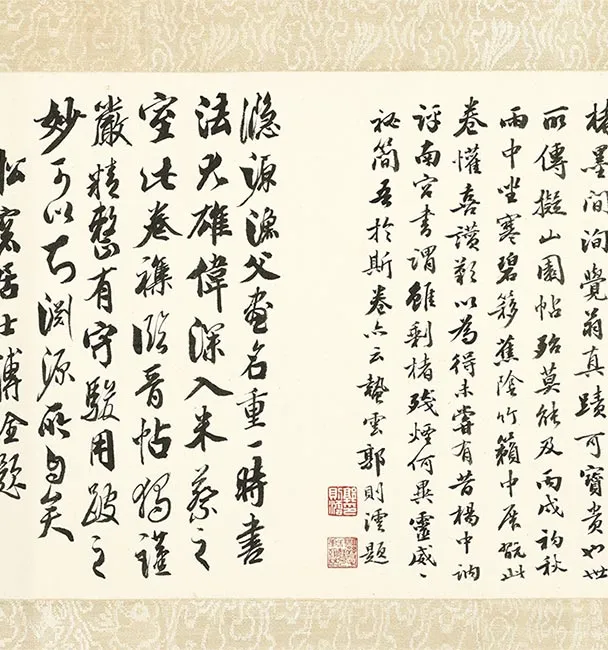 楮墨間洵覺翁真蹟可寶貴如世
所傳擬山園帖殆莫能及丙戌初秋
雨中坐寒碧簃蕉陰竹籟中展翫此
卷懽喜讚歎以為得未嘗有昔楊中訥
評南宮書謂雖剩楮殘煙何異靈威
祕簡吾於斯卷亦云蟄雲郭則澐題
隱源漁父畫名重一時書
法尤雄偉深入米蔡之
室此卷襍臨晉帖獨謹
嚴精整有守駿用跛之
妙可以知淵源所自矣
松窗居士溥金題